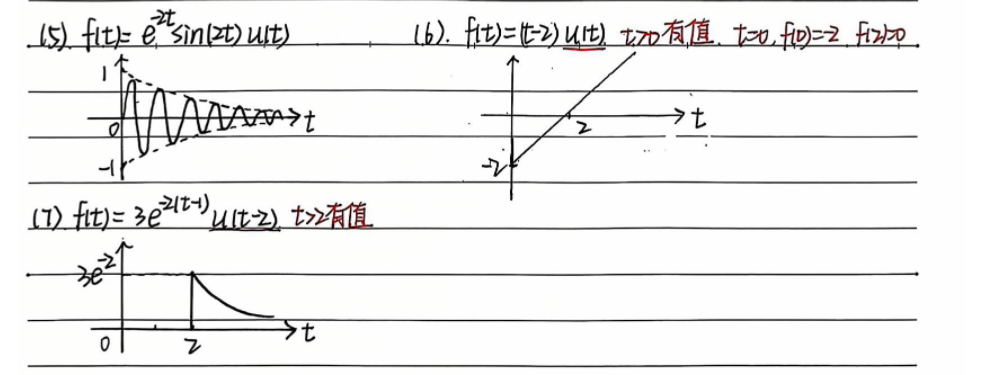 (5) f(t)= e^{-2t} sin(2t) u(t)
(6). f(t)=(t-2) u(t) t>0有值. t=0, f(0)=-2 f(2)=0
1
0
-1
t
2
-2
t
(7) f(t)= 3e^{-2(t-1)} u(t-2) t>2有值
3e^{-2}
0
2
t